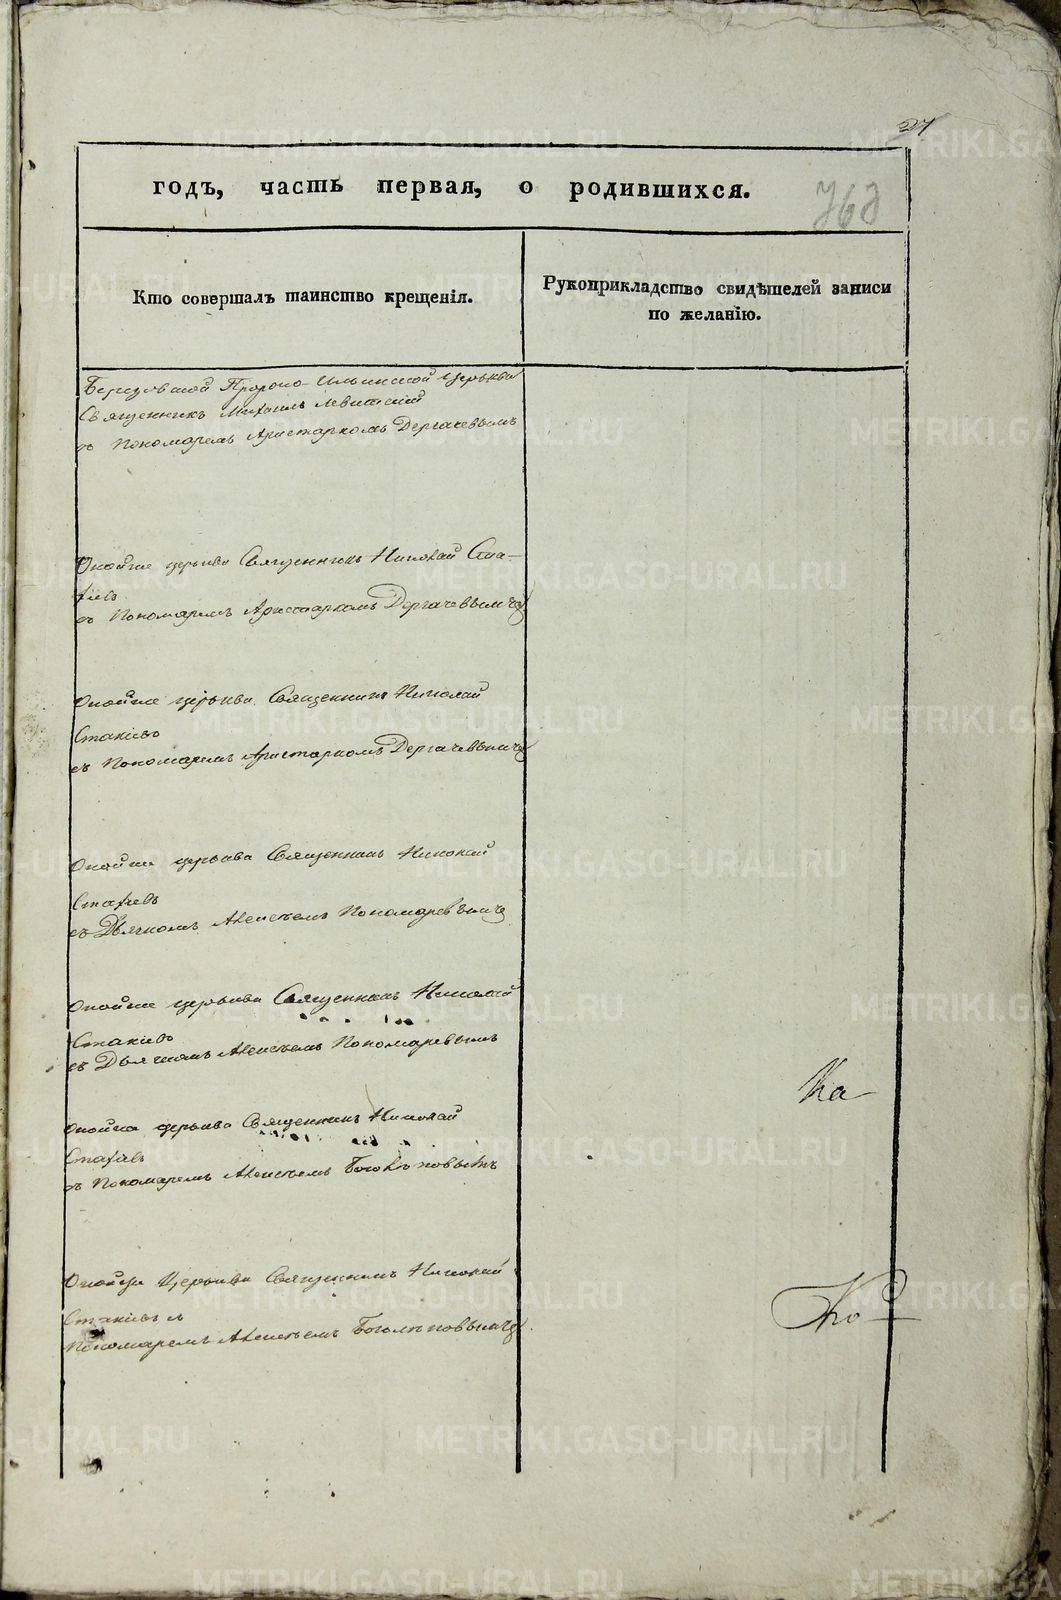 27
годъ, часть первая, о родившихся.
763
Кто совершалъ таинство крещенія.
Рукоприкладство свидѣтелей записи
по желанію.
Пророко-Ильинской Церькви
Священникъ Михаилъ Левитскій
съ Пономаремъ Аристархомъ Дергачевымъ
Оной же церькви Священникъ Николай Ста-
хіевъ
съ Пономаремъ Аристархомъ Дергачевымъ
Оной же церькви Священникъ Николай
Стахіевъ
съ Пономаремъ Аристархомъ Дергачевымъ
Оной же церькви Священникъ Николай
Стахіевъ
съ Дьячкомъ Алексѣемъ Пономаревымъ
Оной же церькви Священникъ Николай
Стахіевъ
съ Дьячкомъ Алексѣемъ Пономаревымъ
Ка-
Оной же церькви Священникъ Николай
Стахіевъ
съ Пономаремъ Алексѣемъ
Церькви Священникъ Николай
Стахіевъ и
Пономаремъ Алексѣемъ
METRIKI.GASO-URAL.RU